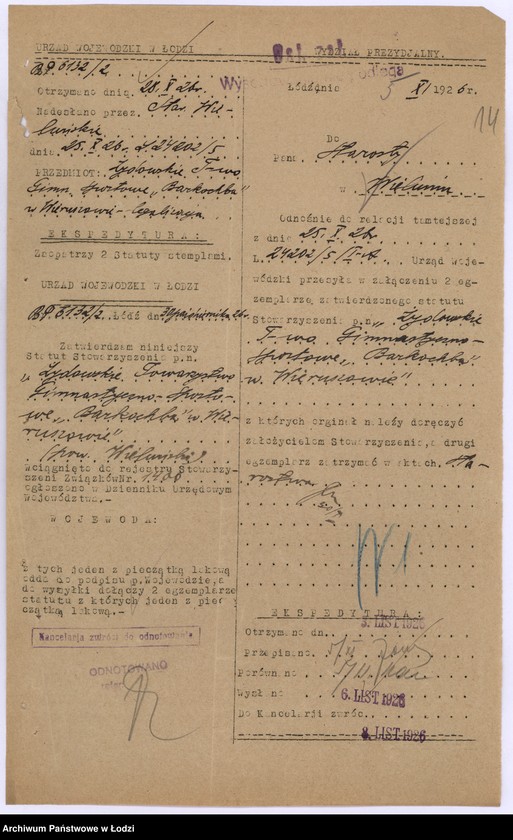 URZĄD WOJEWÓDZKI W ŁODZI
WYDZIAŁ PREZYDJALNY.
BP. 6132/2
Otrzymano dnia 28.X 26r.
Nadesłano przez Star. Wie-
luńskie
dnia 25.X 26. L. 24202/5
PRZEDMIOT: Żydowskie T-wo
Gimn. Sportowe "Barkochba"
w Wieruszowie - legalizacja
EKSPEDYTURA:
Zaopatrzy 2 Statuty stemplami.
URZĄD WOJEWÓDZKI W ŁODZI
BP. 6132/2. Łódź dn. października 26r.
Zatwierdzam niniejszy
Statut Stowarzyszenia p.n.
"Żydowskie Towarzystwo
Gimnastyczno-Sporto-
we "Barkochba" w Wie-
ruszowie"
(pow. Wieluński)
wciągnięto do rejestru Stowarzy-
szeń i Związków Nr. 1400
ogłoszono w Dzienniku Urzędowym
Województwa.-
WOJEWODA:
z tych jeden z pieczątką lakową
odda do podpisu p.Wojewodzie, a
do wysyłki dołączy 2 egzemplarze
statutu z których jeden z pie
czątką lakową.-
Kancelarja zwróci do odnotowania
ODNOTOWANO
Łódź dnia 5 XI 1926 r.
14
Do
Pana Starosty
w Wieluniu
Odnośnie do relacji tamtejszej
z dnia 25.X 26.
L. 24202/5/I-A. Urząd Woje-
wódzki przesyła w załączeniu 2 eg-
zemplarze zatwierdzonego statutu
Stowarzyszenia p.n. "Żydowskie
T-wo Gimnastyczno-
Sportowe "Barkochba"
w Wieruszowie"
z których orginał należy doręczyć
założycielom Stowarzyszenia, a drugi
egzemplarz zatrzymać w aktach. Sta-
rostwa.
N 1
EKSPEDYTURA:
5. LIST 1926
Otrzymano dn.
Przepisano
Porównano
Wysłano
6. LIST 1926
Do Kancelarji zwróc.
8. LIST 1926
Archiwum Państwowe w Łodzi